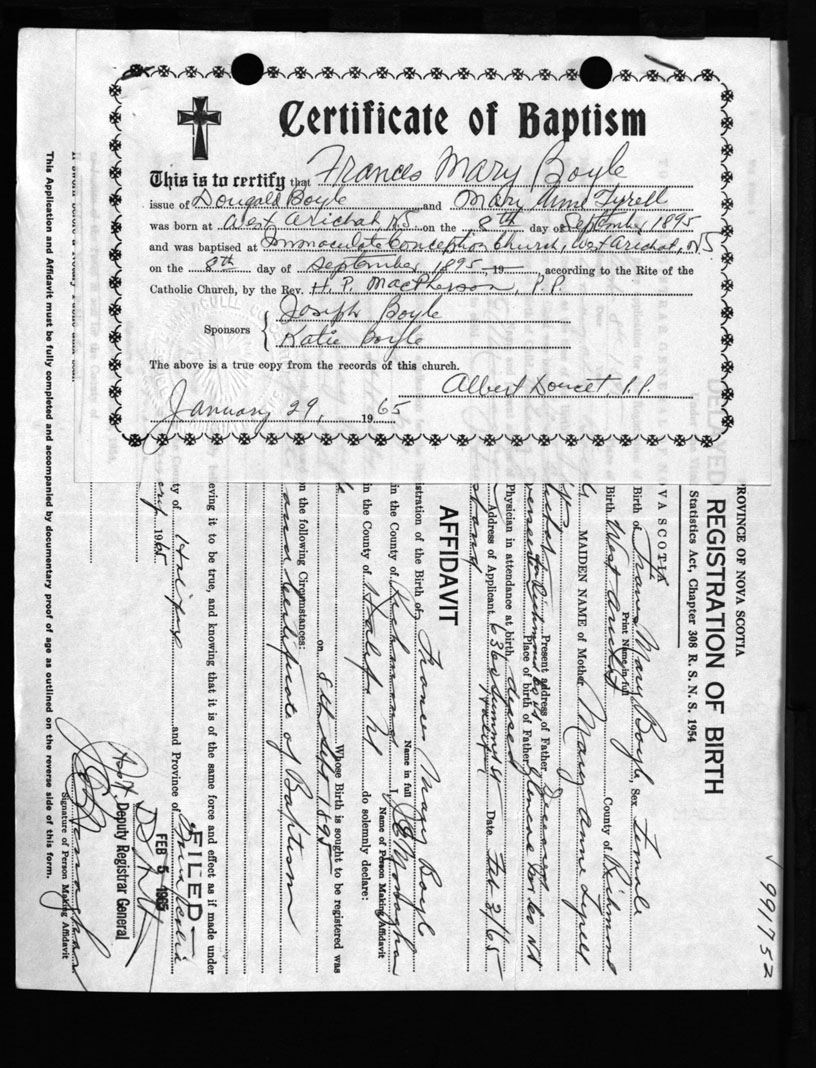 Certificate of Baptism
This is to certify that Frances Mary Boyle
issue of Dougald Boyle and Mary Anne Tyrell
was born at West Arichat N.S. on the 8th day of September, 1895
and was baptised at Immaculate Conception Church, West Arichat, N.S
on the 8th day of September, 1895 19 , according to the Rite of the
Catholic Church, by the Rev. H. P. MacPherson, P.P.
Sponsors
Joseph Boyle
Katie Boyle
The above is a true copy from the records of this church.
Albert Doucet, P.P.
January 29, 1965
991752
ROVINCE OF NOVA SCOTIA
REGISTRATION OF BIRTH
Statistics Act, Chapter 308 R. S. N. S. 1954
OVA SCOTIA
Birth of Frances Mary Boyle, Sex Female
Print Name in full
Birth West Arichat County of Richmond
MAIDEN NAME of Mother Mary Anne Tyrell
Present address of Father Deceased
Richmond Co NS Place of birth of Father Glencoe
Physician in attendance at birth deceased
Address of Applicant 6360 Summit St Date Feb 3/65
Halifax
AFFIDAVIT
stration of the Birth of Frances Mary Boyle
Name in full
in the County of Richmond I,
Name of Person Making Affidavit
in the County of Halifax do solemnly declare:
Whose Birth is sought to be registered was
on 8th Sept 1895
n the following Circumstances:
Certificate of Baptism
eving it to be true, and knowing that it is of the same force and effect as if made under
ty of Halifax and Province of Nova Scotia
1965
FILED
FEB 5 1965
Deputy Registrar General
Signature of Person Making Affidavit
This Application and Affidavit must be fully completed and accompanied by documentary proof of age as outlined on the reverse side of this form.